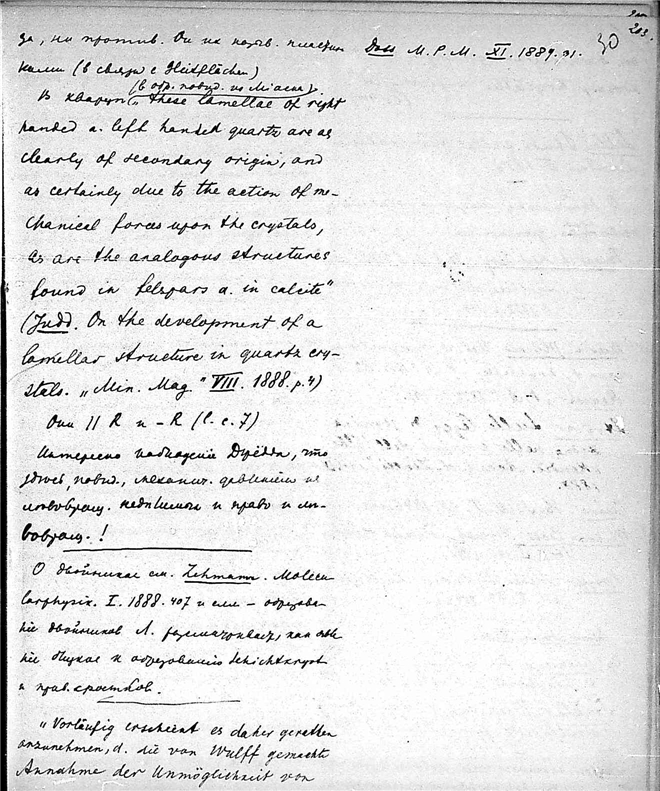 за, ни против. Он их назыв. пластин
ками (в связи с Heitflächen)
(в обр. повид. из Miaсна).
В кварце „these lamellae of right
handed a. left handed quartz are as
clearly of secondary origin, and
as certainly due to the action of me-
chanical forces upon the crystals,
as are the analogous structures
found in felspars a. in calcite"
(Judd. On the development of a
lamellar structure in quartz cry-
stals. „Min. Mag" VIII. 1888. p. 4)
Они || R и -R (l. c. 7)
Интересно наблюдение Джёдда, что
здесь, повид., механич. давлением из
и право и ле-
вовращ.!
О двойниках см. Lehmann. Molecu
larphysik. I. 1888. 407 и сл. – образова
ние двойников Л. как
и образованию Schichtkryst
и прав. сростков.
„Vorläufig erscheint es daher gerathen
anzunehmen, d. die von Wulff gemachte
Annahme der Unmöglichkeit von
Doss M. P. M. XI. 1889. 31.
30